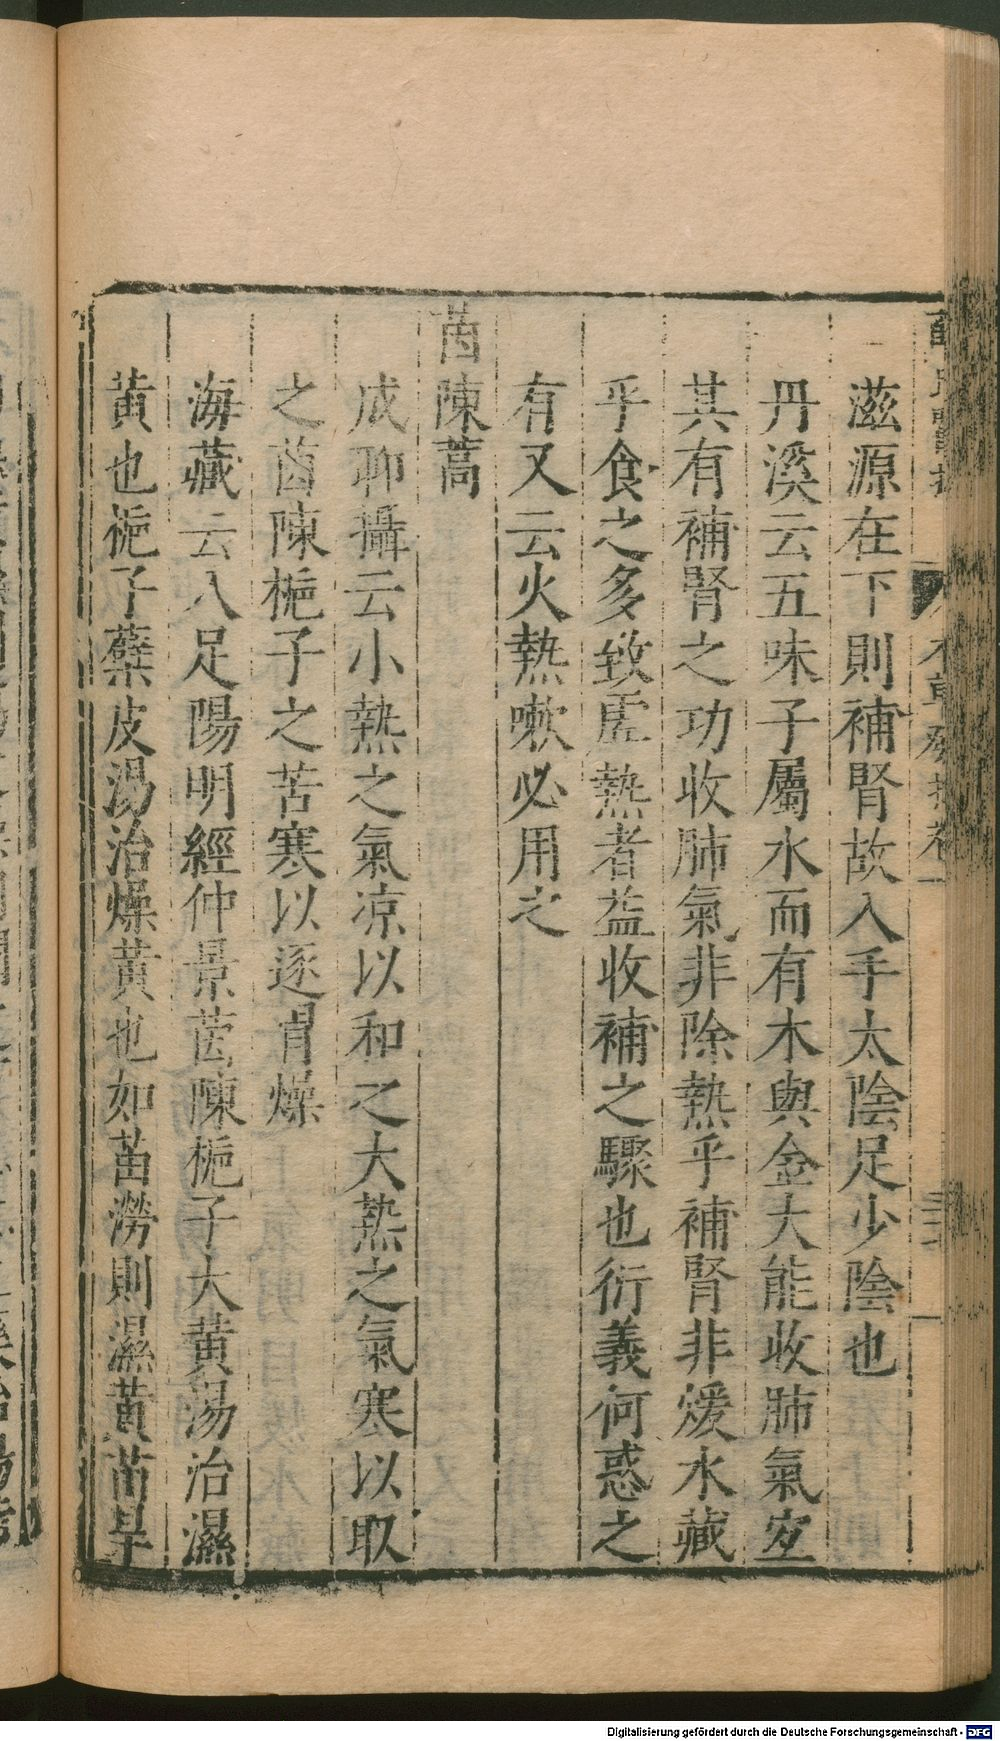 本草發揮卷一
滋源在下則補腎故入手太陰足少陰也
丹溪云五味子屬水而有木與金大能收肺氣宜
其有補腎之功收肺氣非除熱乎補腎非煖水藏
乎食之多致虛熱者葢收補之驟也衍義何惑之
有又云火熱嗽必用之
茵陳蒿
成聊攝云小熱之氣凉以和之大熱之氣寒以取
之茵陳梔子之苦寒以逐胃燥
海藏云入足陽明經仲景茵陳梔子大黄湯治濕
黄也梔子蘗皮湯治燥黄也如苗澇則濕黄苗旱
Digitalisierung gefördert durch die Deutsche Forschungsgemeinschaft - DFG